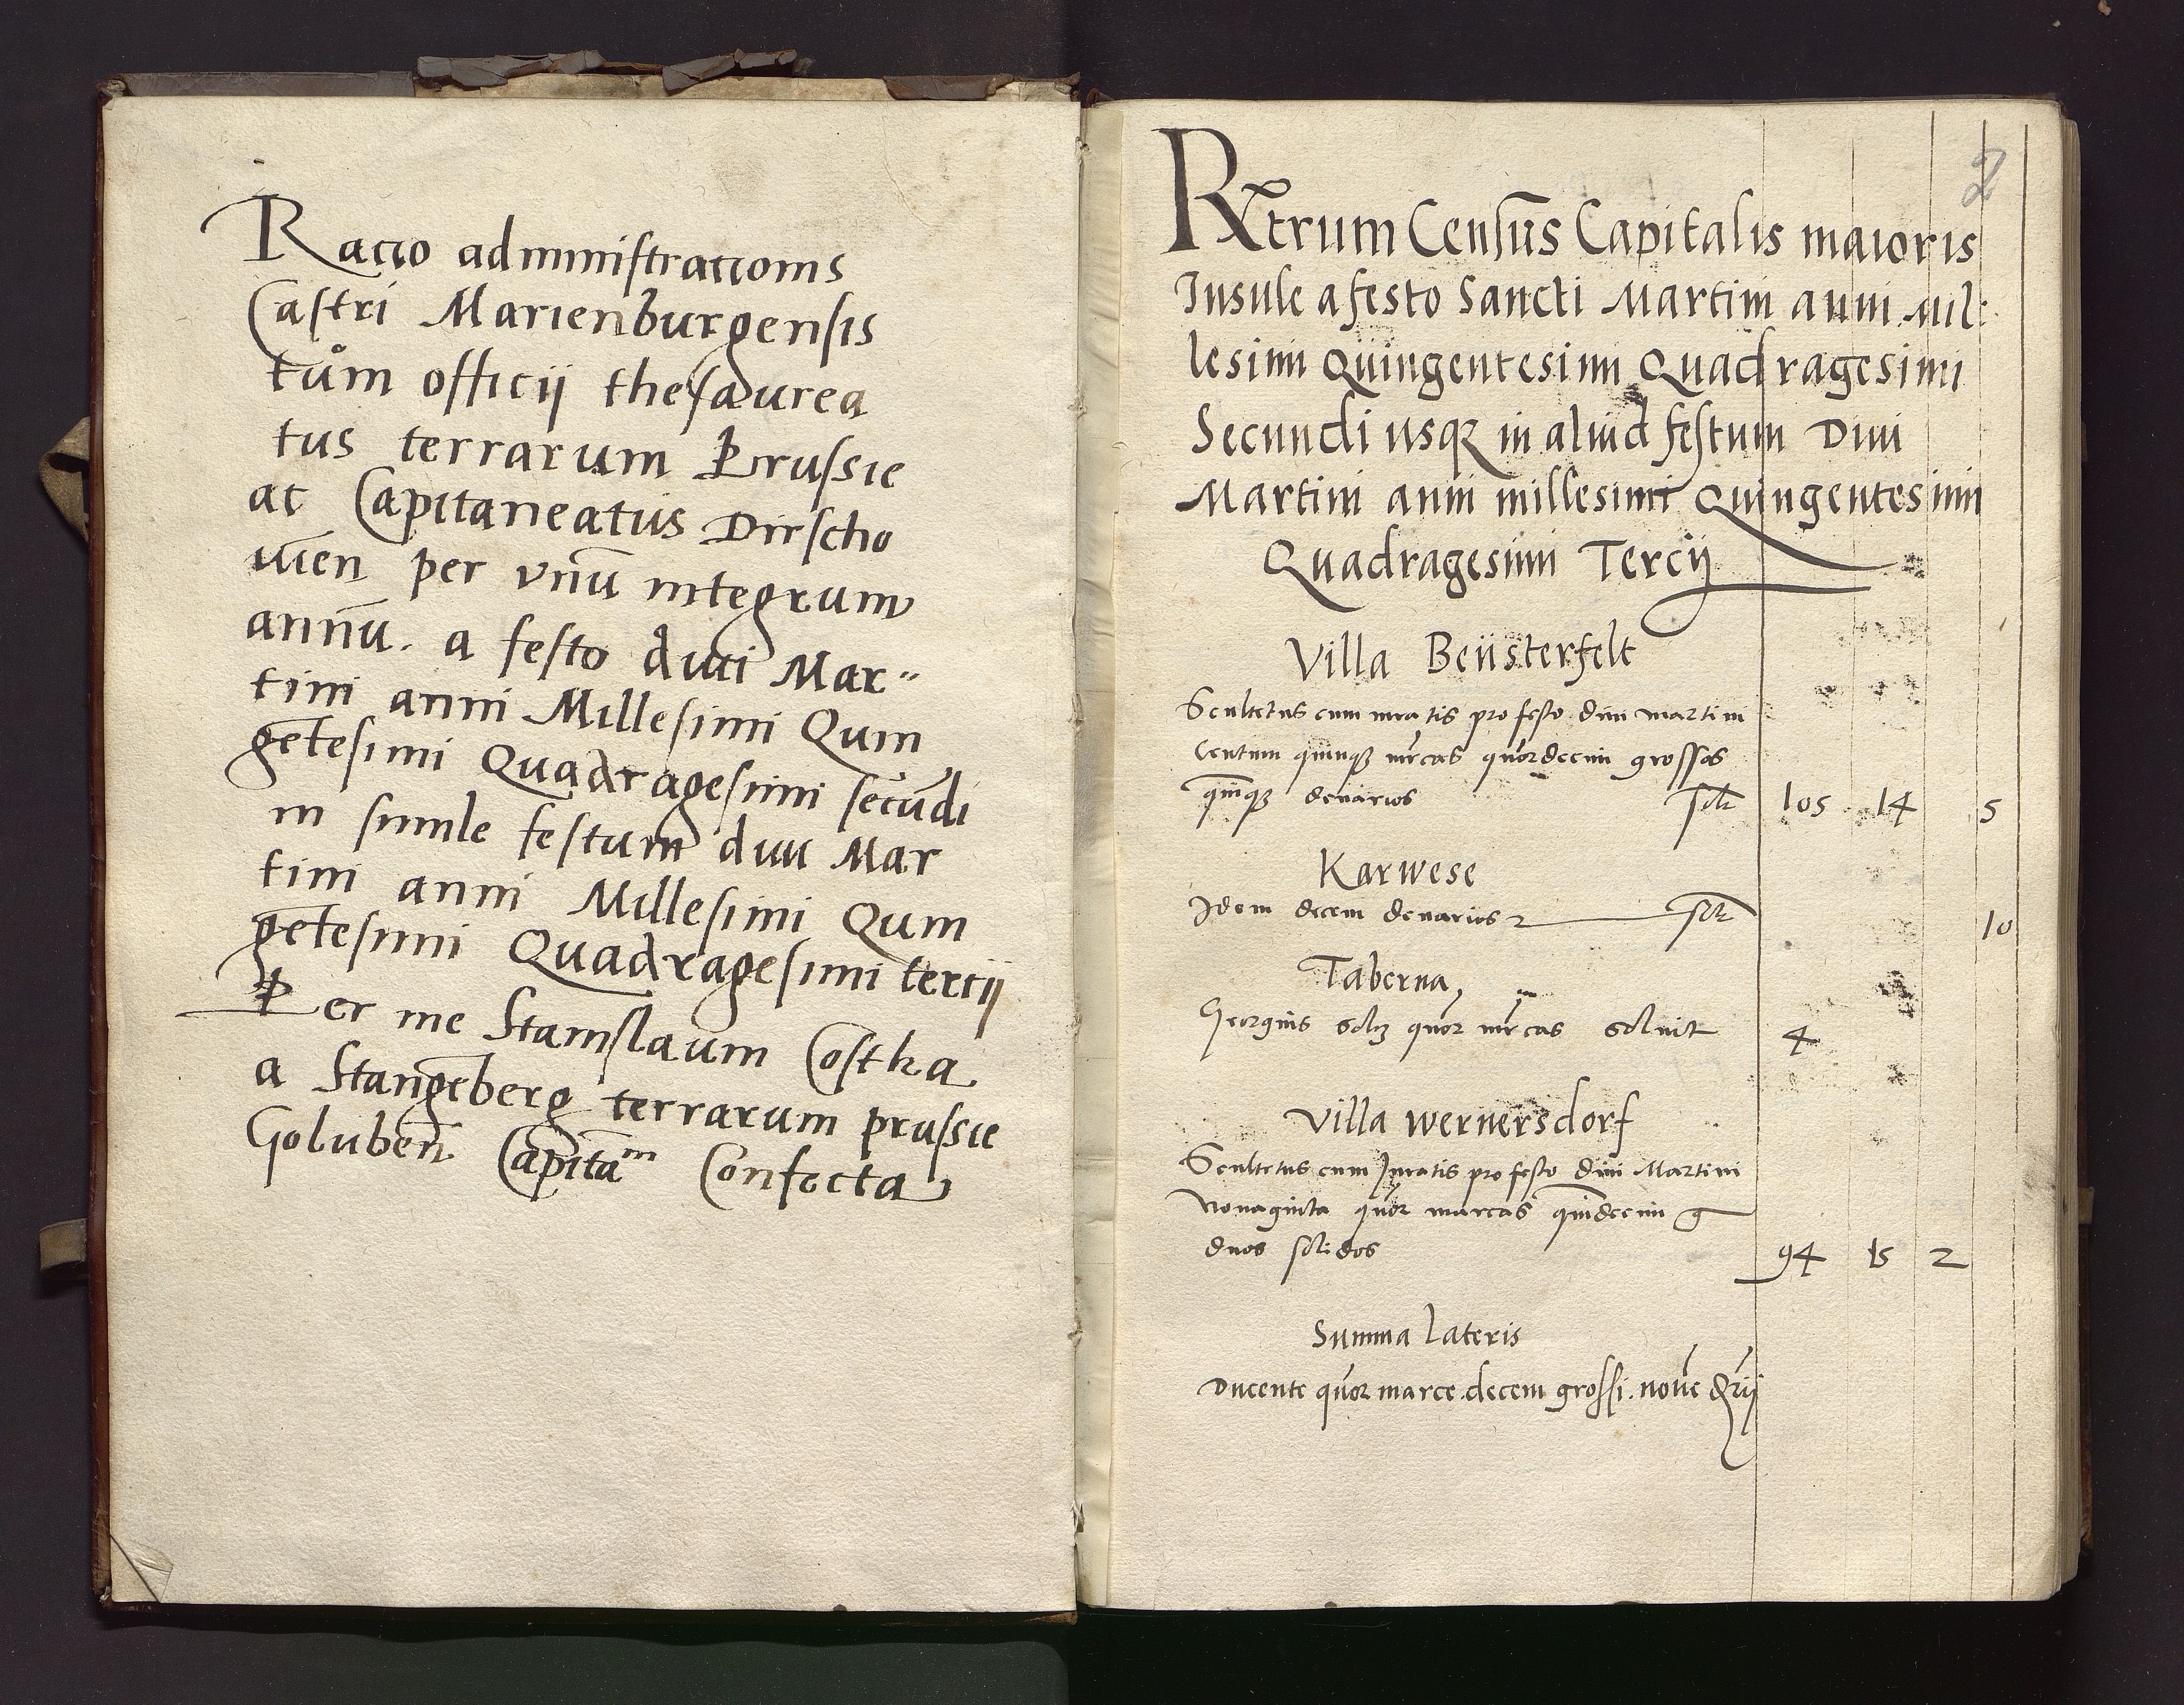 Racio administracionis
Castri Marienburgensis
tům officij thesaurea
tus terrarum Prussie
ac Capitaneatus Dirscho
uien̄ per vnū integrum
annū. a festo diui Mar"
tini anni Millesimi Quin
gētesimi Quadragesimi secūdi
in simile festum diui Mar
tini anni Millesimi Quin
gētesimi Quadragesimi tercij
Per me Stanislaum Costka
a Stangēberg terrarum prussie
Goluben̄ Capitaⁿᵐ Confecta
2
Rx̄trum Censūs Capitalis maioris
Insule a festo Sancti Martini anni Mil:
lesimi Quingentesimi Quadragesimi
Secundi usqꝫ in aliud festum Diui
Martini anni millesimi Quingentesimi
Quadragesimi Tercij
Villa Beüsterfelt
Scultetus cum iuratis pro festo diui martini
Centum quinqꝫ mrcas quordecim grossos
quīqꝫ denarios solt 105 14 5
Karwese
Idem decem denarios solt 10
Taberna
Georgius quor mrcas soluit 4
Villa Wernersdorf
Scultetus cum Juratis pro festo diui Martini
Nonaginta quor marcas quīdecim g
duos solidos 94 15 2
Summa lateris
Ducente quor marce. decem grossi. noūe drij